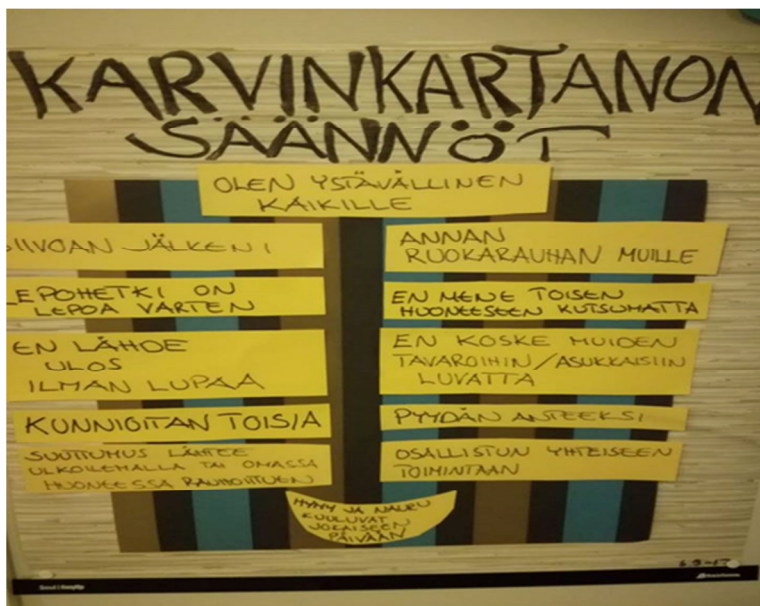 KARVINKARTANON
SÄÄNNÖT
OLEN YSTÄVÄLLINEN
KAIKILLE
SIIVOAN JÄLKENI
LEPOHETKI ON
LEPOA VARTEN
EN LÄHDE
ULOS
ILMAN LUPAA
KUNNIOITAN TOISIA
SUUTTUMUS LÄHTEE
ULKOILEMALLA TAI OMASSA
HUONEESSA RAUHOITTUEN
ANNAN
RUOKARAUHAN MUILLE
EN MENE TOISEN
HUONEESEEN KUTSUMATTA
EN KOSKE MUIDEN
TAVAROIHIN/ASUKKAISIIN
LUVATTA
PYYDÄN ANTEEKSI
OSALLISTUN YHTEISEEN
TOIMINTAAN
HYMY JA NAURU
KUULUVAT
JOKAISEEN
PÄIVÄÄN